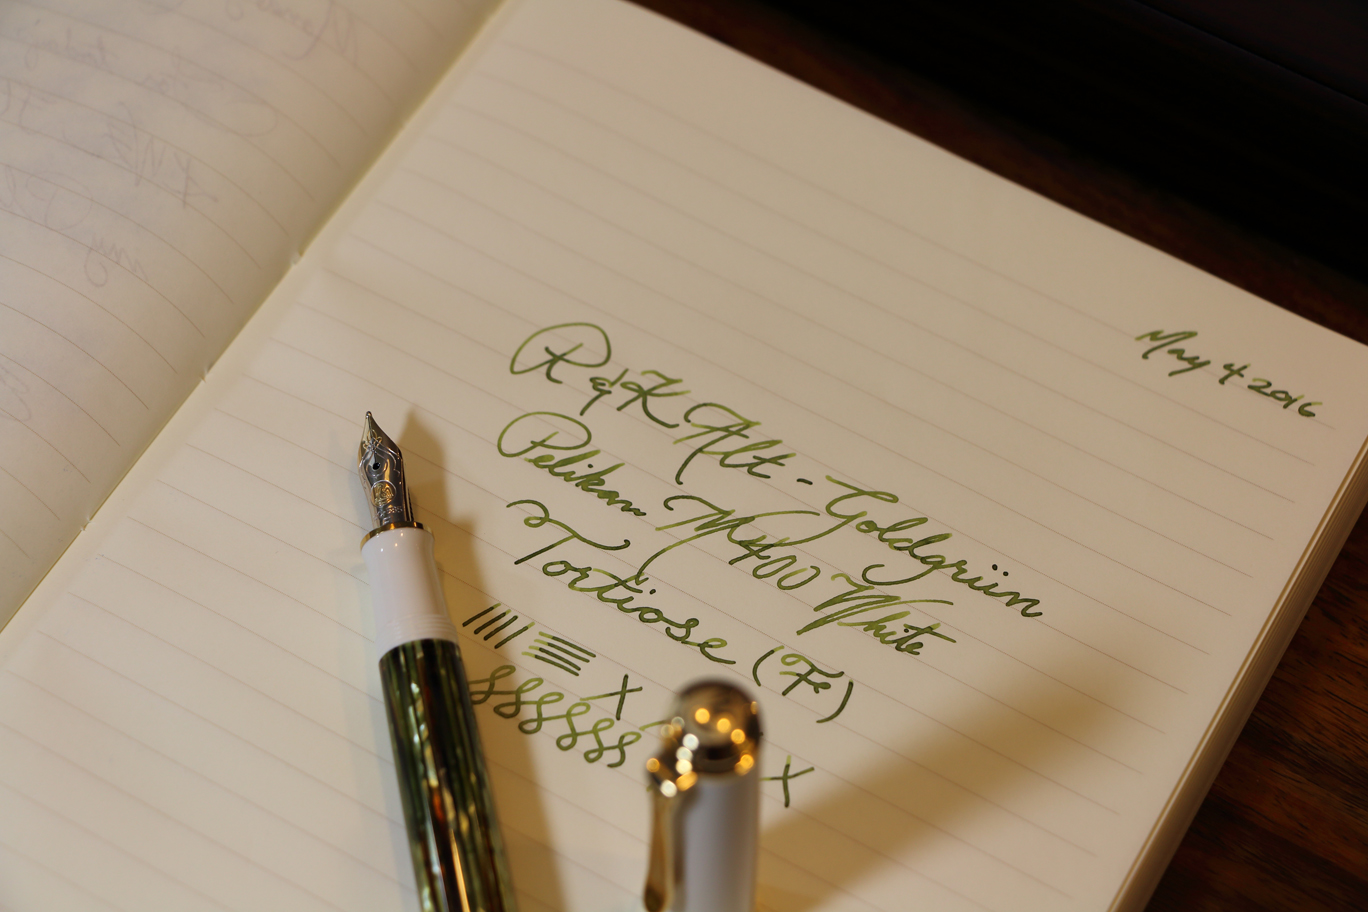 May 4 2016
R & K Alt-Goldgrün
Pelikan M400 White
Tortiose (F)